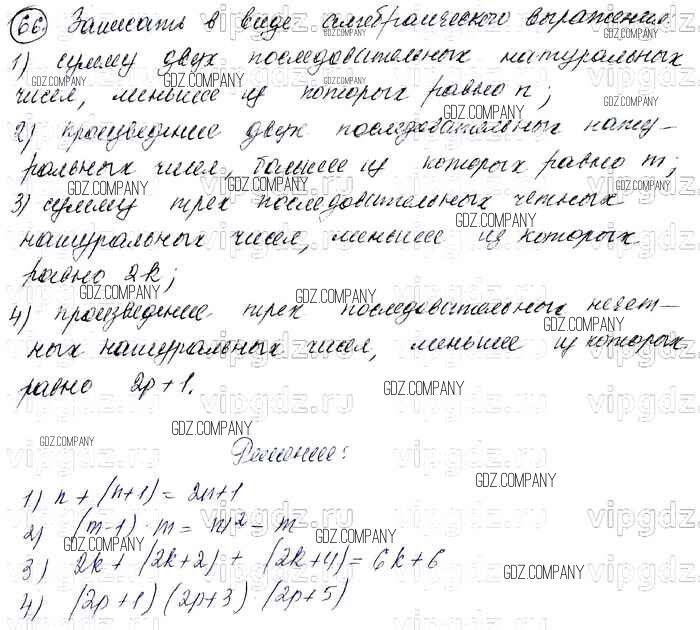 66. Записать в виде алгебраического выражения:
1) сумму двух последовательных натуральных
чисел, меньшее из которых равно n;
2) произведение двух последовательных нату-
ральных чисел, большее из которых равно m;
3) сумму трех последовательных четных
натуральных чисел, меньшее из которых
равно 2k;
4) произведение трех последовательных нечет-
ных натуральных чисел, меньшее из которых
равно 2p+1.
Решение:
1) n + (n+1) = 2n+1
2) (m-1) · m = m² - m
3) 2k + (2k+2) + (2k+4) = 6k+6
4) (2p+1)(2p+3)(2p+5)
GDZ.COMPANY
vipgdz.ru